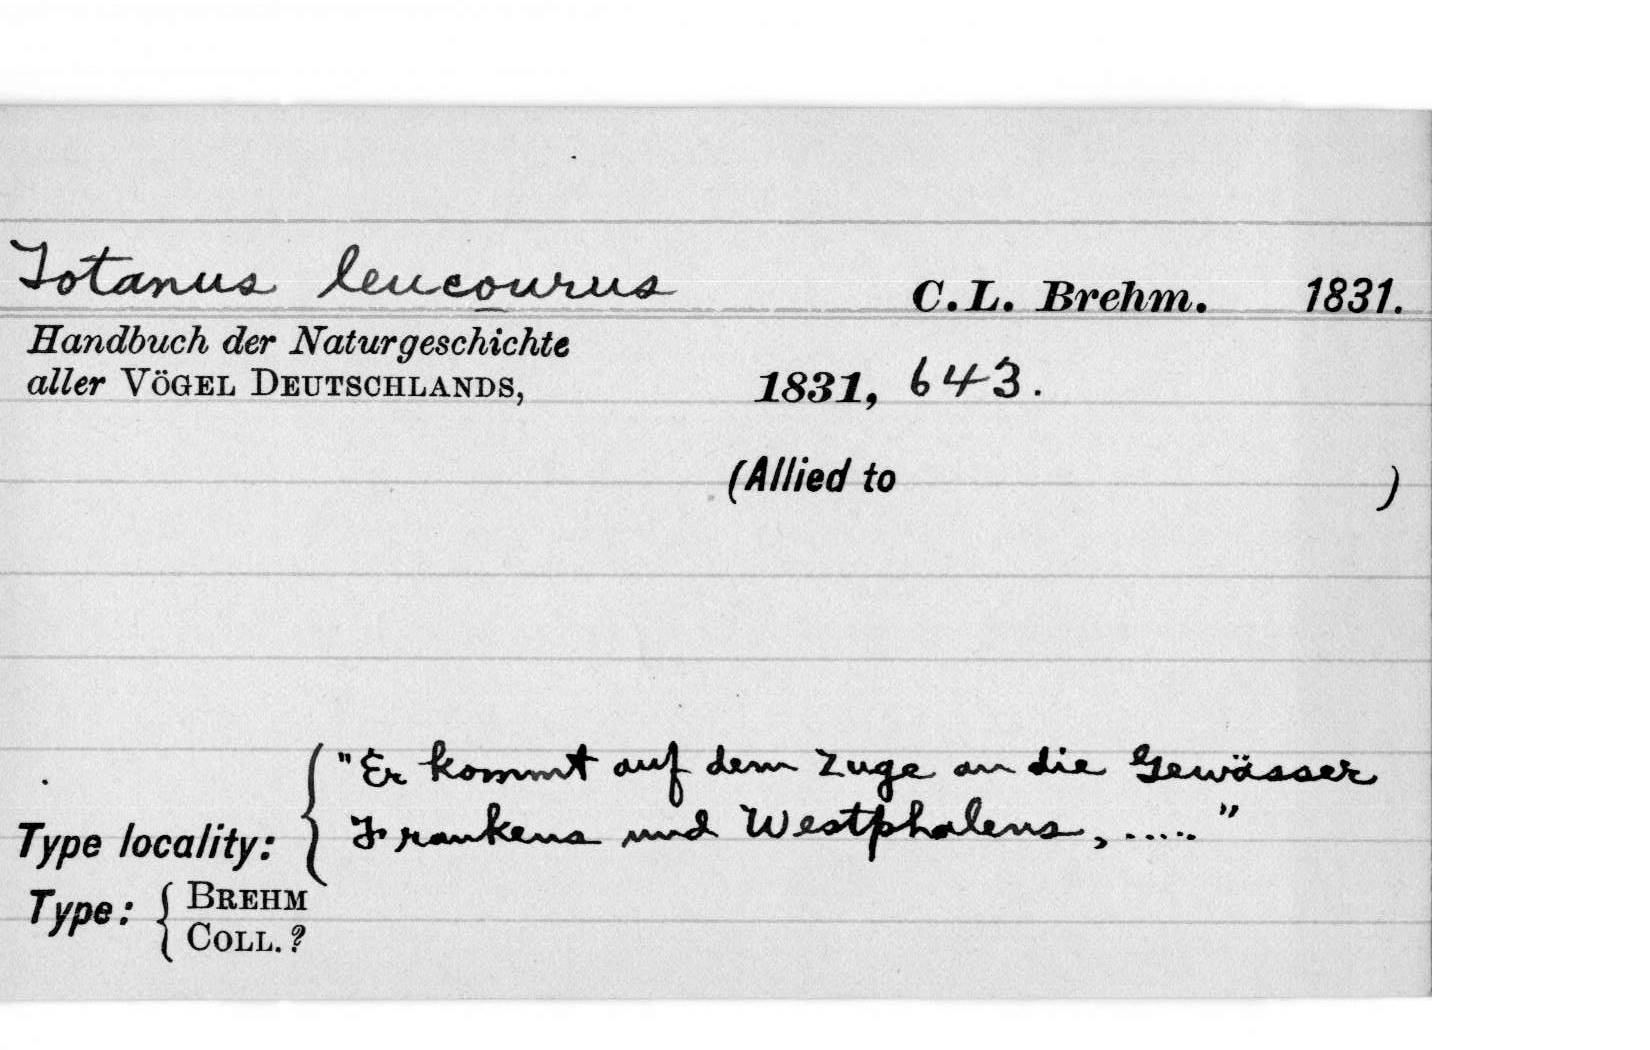 Totanus leucourus C.L. Brehm. 1831.
Handbuch der Naturgeschichte
aller VÖGEL DEUTSCHLANDS, 1831, 643.
(Allied to )
"Er kommt auf dem Zuge an die Gewässer
Type locality: Frankens und Westphalens, ....."
Type: BREHM
COLL.?